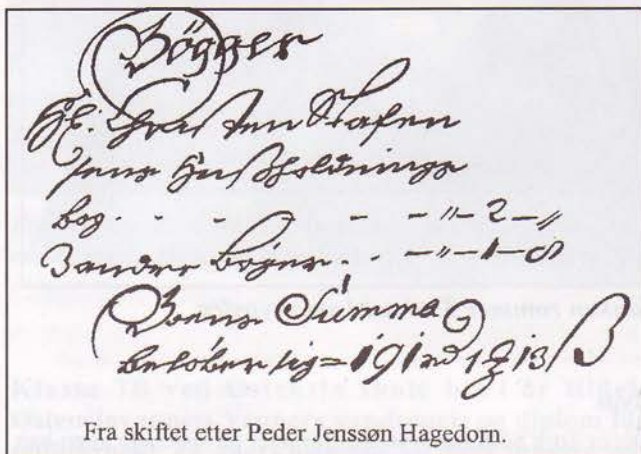 Bøgger
Hr. Christen Stafen
sens Huusholdnings
bog. - - - - - " - 2 - "
3 andre bøger. - - " - 1 - 8
Boens Summa
beløber sig = 191 rd 1 13 ß
Fra skiftet etter Peder Jenssøn Hagedorn.